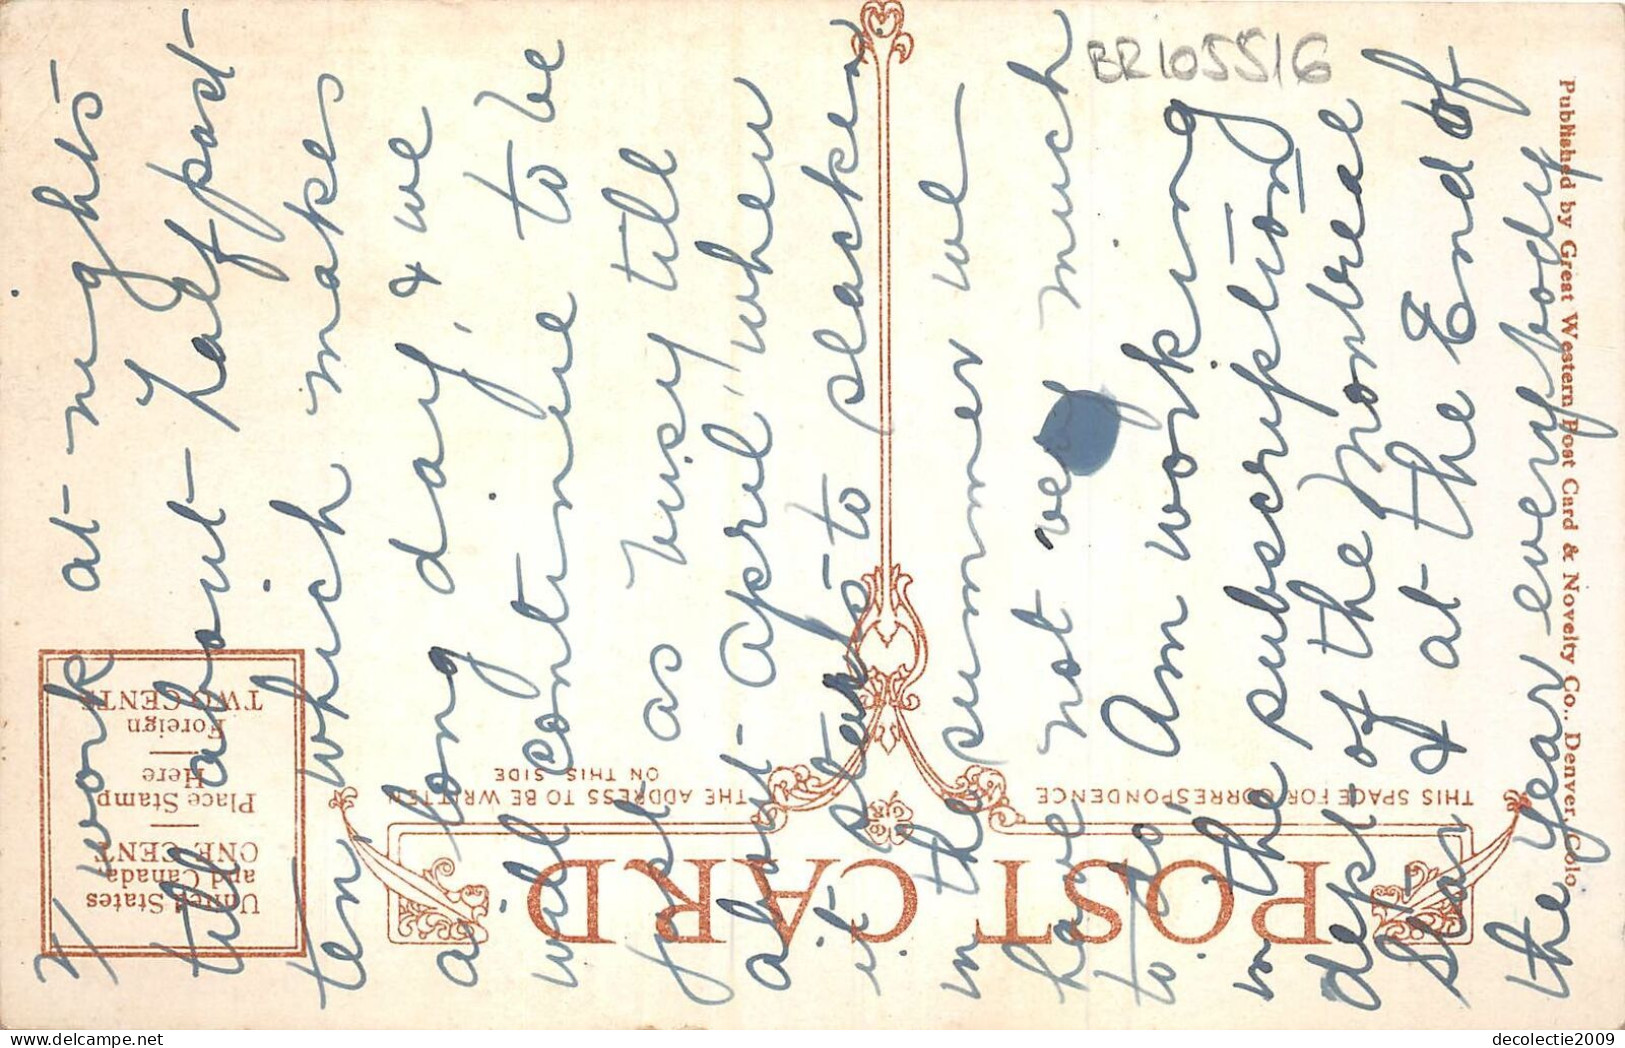 I work at nights
till about half past
ten which makes
a long day, & we
will continue to be
just as busy till
about april when
it starts to slacken
in the summer we
have not very much
to do,
Am working
in the subscription
dept of the Montreal
Star & at the End of
the year everybody
BR105516
POST CARD
THIS SPACE FOR CORRESPONDENCE
THE ADDRESS TO BE WRITTEN
ON THIS SIDE
United States
and Canada
ONE CENT
Place Stamp
Here
Foreign
TWO CENTS
Published by Great Western Post Card & Novelty Co., Denver, Colo.
decolectie2009
www.delcampe.net